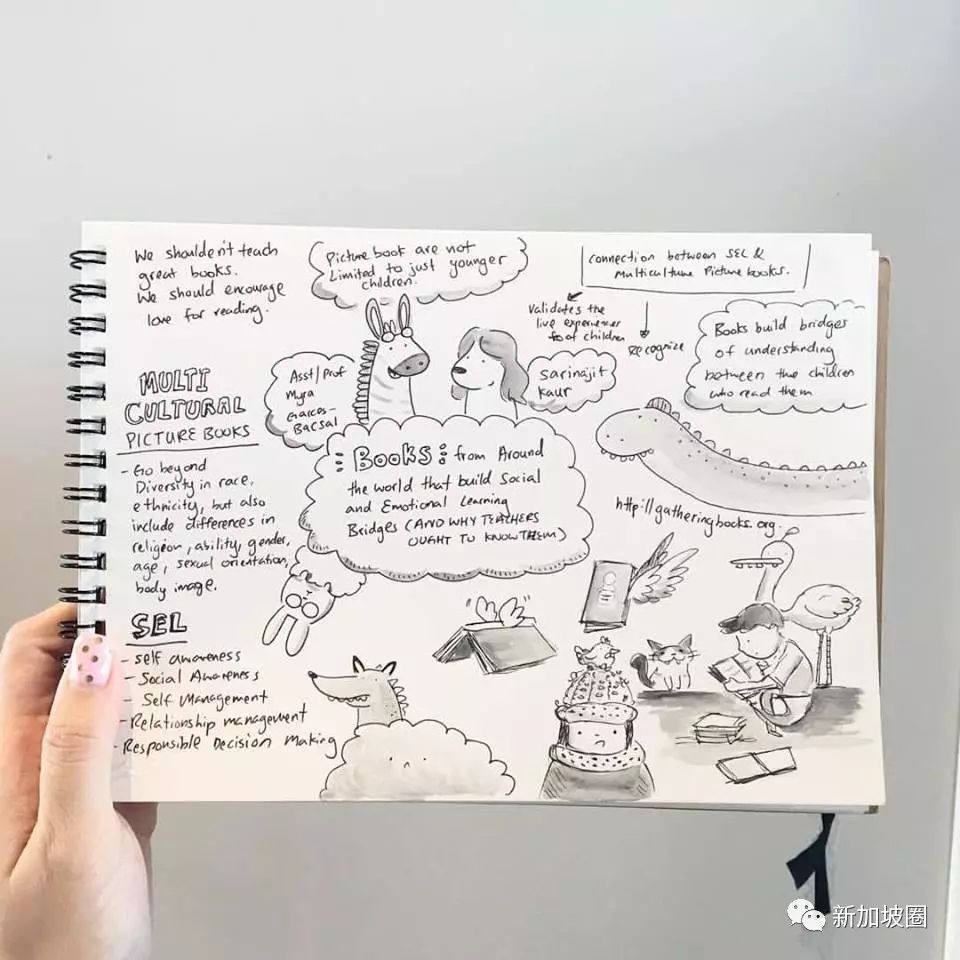 We shoulden't teach
great books.
We should encourage
love for reading.
Picture book are not
Limited to just younger
children.
connection between SEL &
Multiculture Picture books.
Validates the
live experiences
of children
Recognize
Books build bridges
of understanding
between the children
who read them
Asst/Prof
Myra
Garces-
Bacsal
Sarinajit
Kaur
MULTI
CULTURAL
PICTURE BOOKS
- Go beyond
Diversity in race,
ethnicity, but also
include differences in
religion, ability, gender,
age, sexual orientation,
body image.
: BOOKS : from Around
the world that build Social
and Emotional Learning
Bridges (AND WHY TEACHERS
OUGHT TO KNOW THEM)
http://gatheringbooks.org.
SEL
- Self awareness
- Social Awareness
- Self Management
- Relationship management
- Responsible Decision Making
新加坡圈